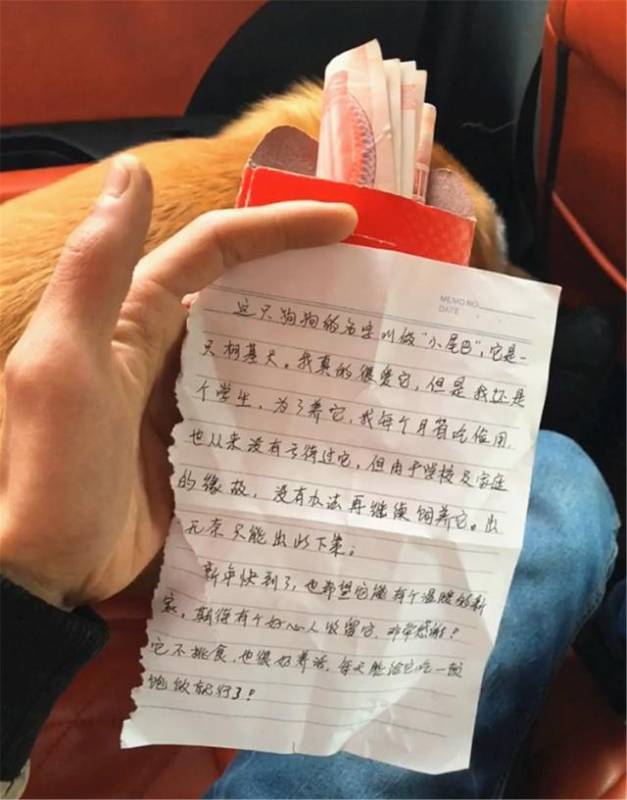 MEMO NO.
DATE
这只狗狗的名字叫做“小尾巴”,它是一
只柯基犬。我真的很爱它,但是我还是
个学生,为了养它,我每个月省吃俭用,
也从来没有亏待过它。但由于学校及家庭
的缘故,没有办法再继续饲养它。出
无奈只能出此下策;
新年快到了,也希望它能有个温暖的新
家,能有个好心人收留它,非常感谢!
它不挑食,也很好养活,每天能给它吃一顿
饱饭就行了!